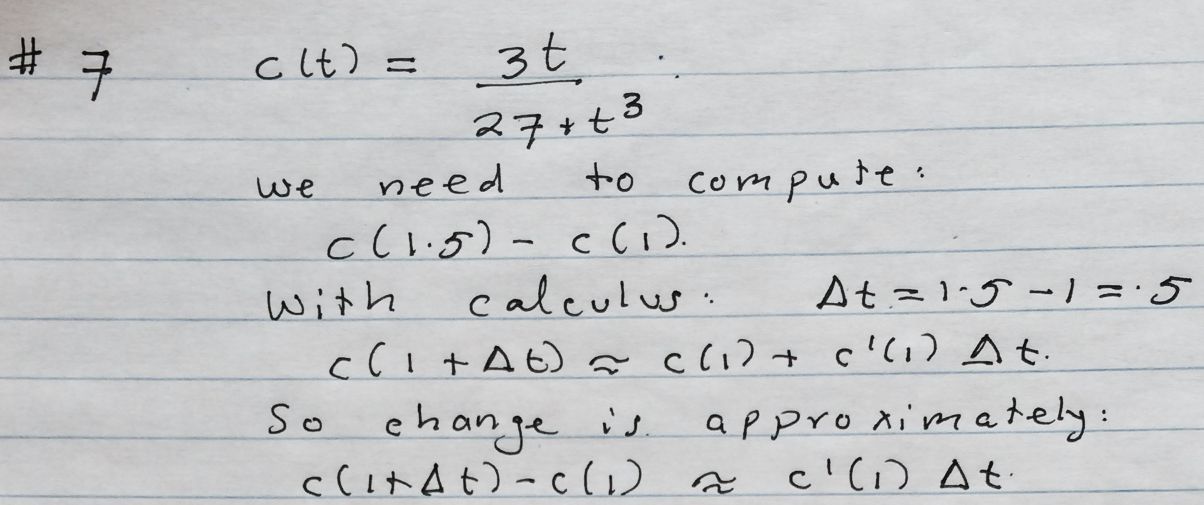 # 7 c(t) = 3t / 27 + t³
we need to compute:
c(1.5) - c(1).
With calculus: Δt = 1.5 - 1 = .5
c(1 + Δt) ≈ c(1) + c'(1) Δt.
So change is approximately:
c(1+Δt) - c(1) ≈ c'(1) Δt.